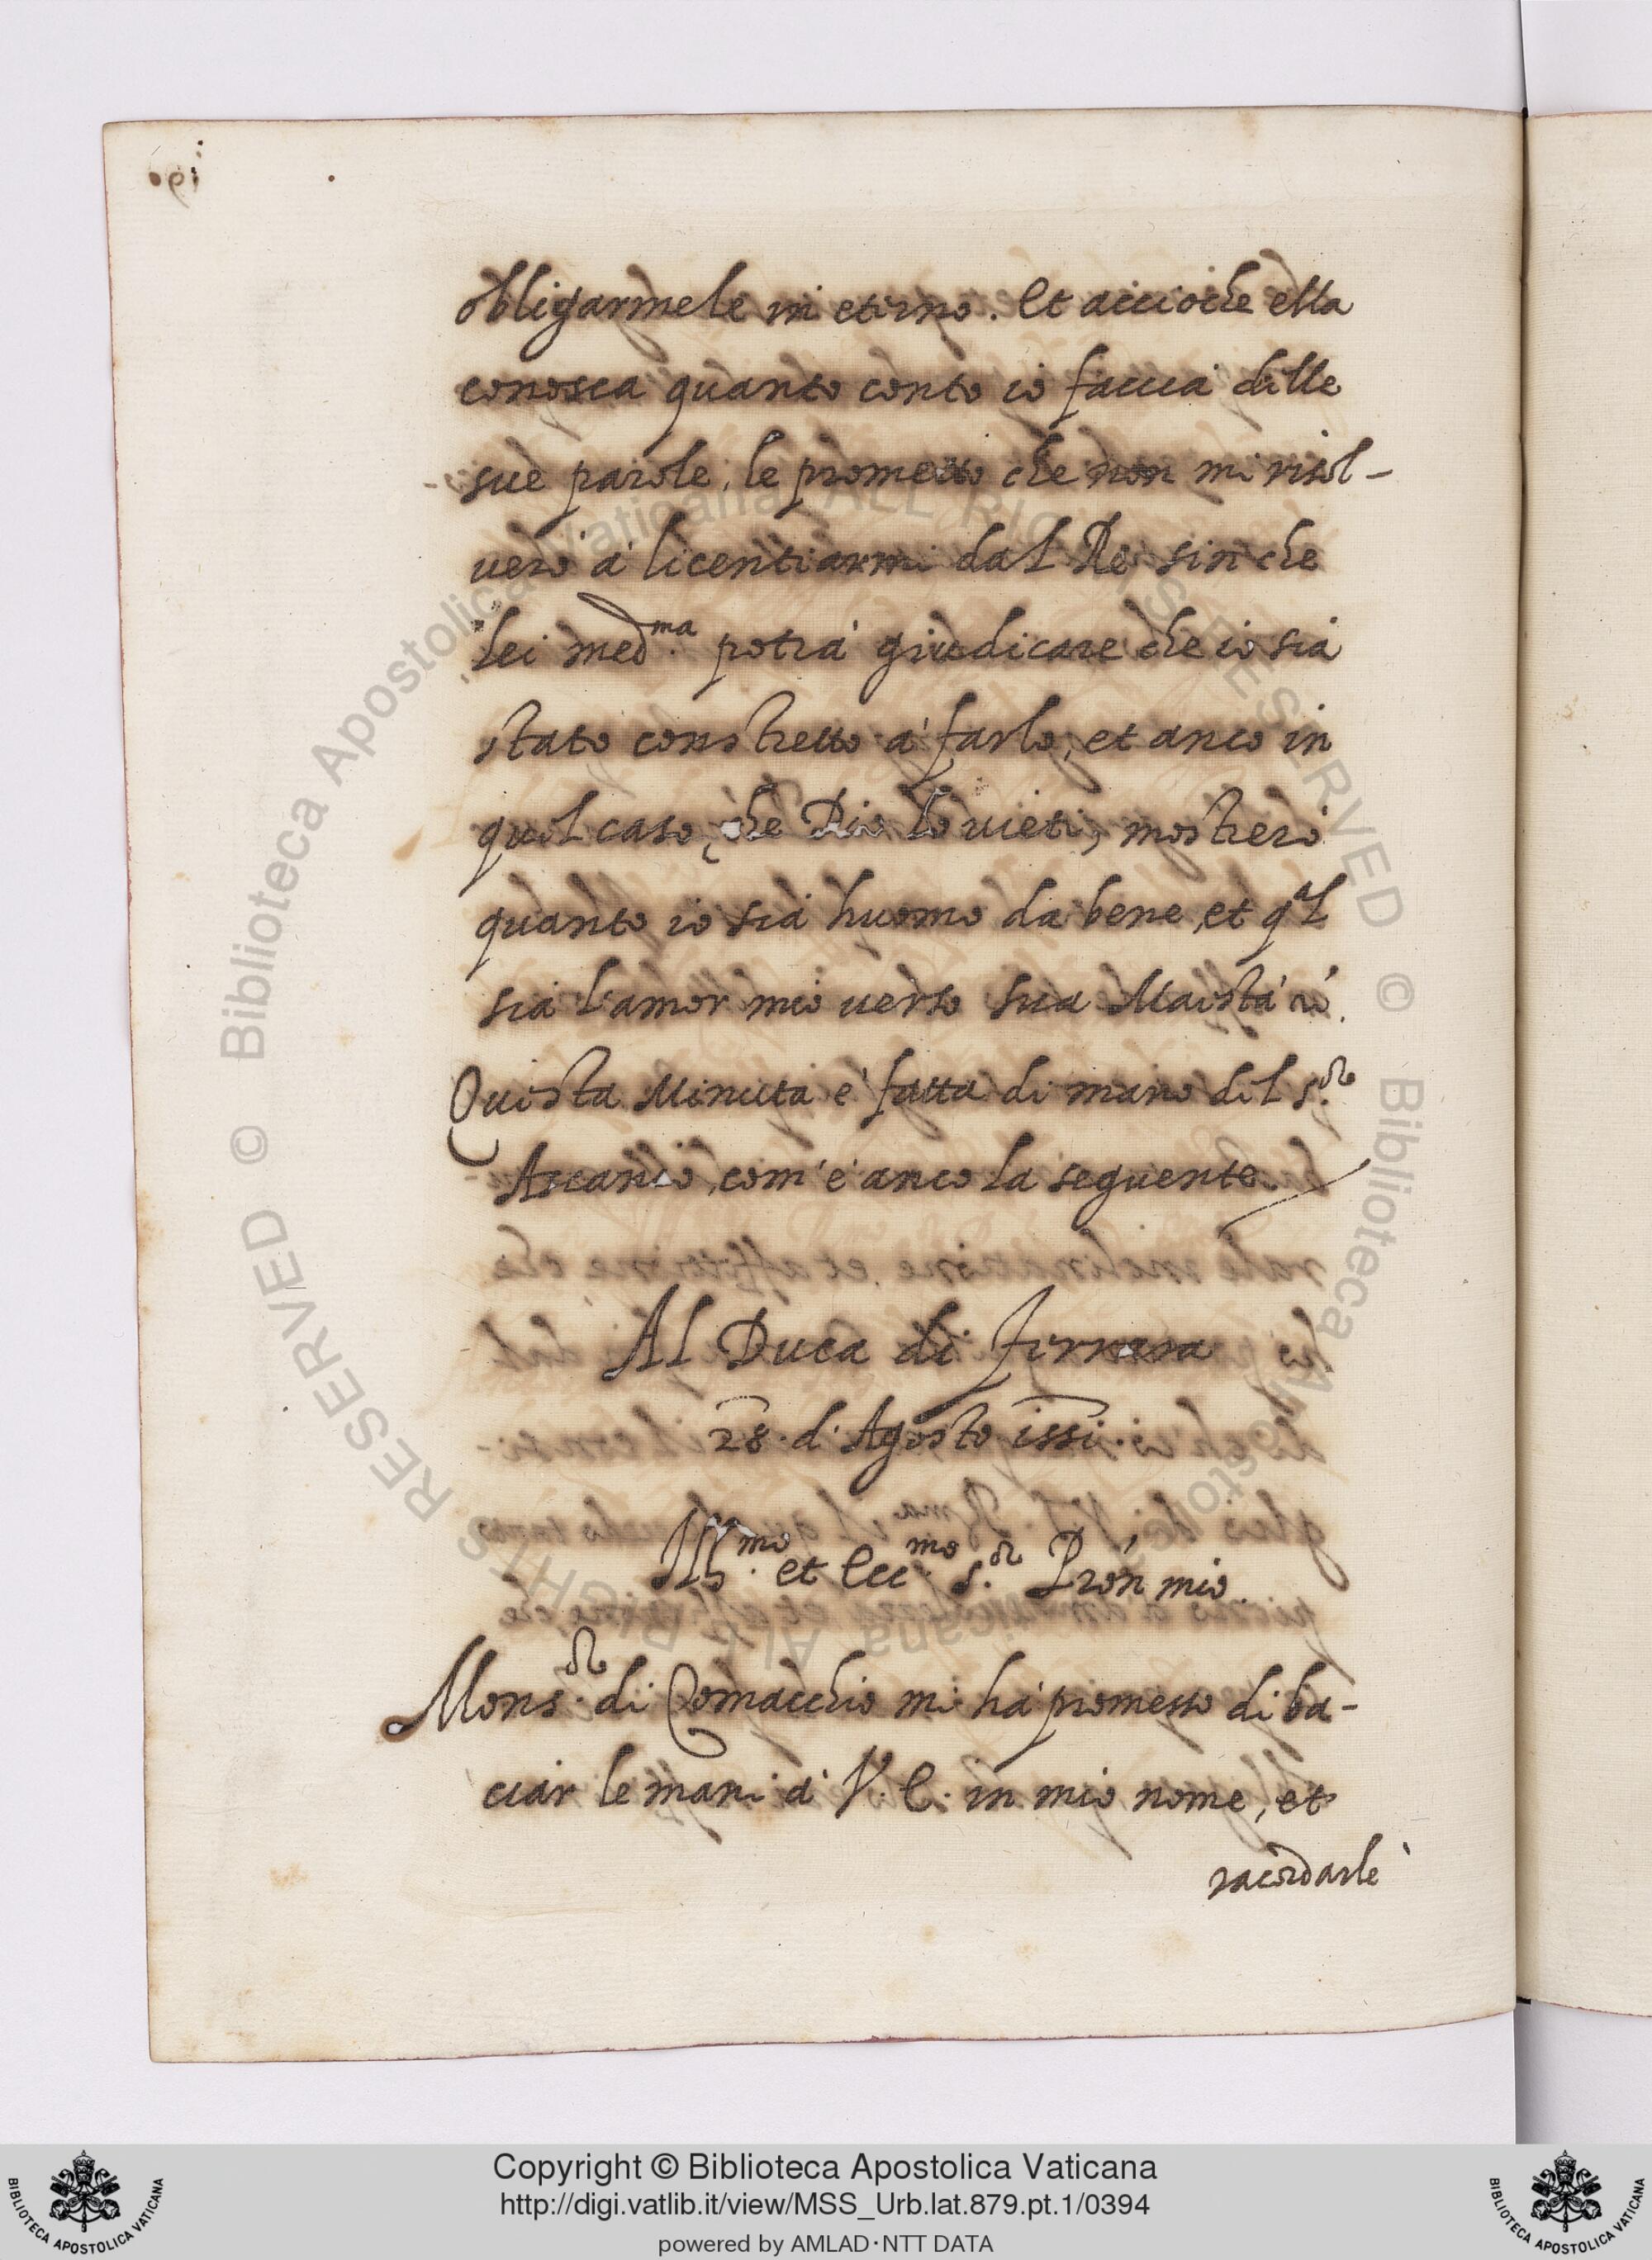 obligarmele in eterno. Et accioche ella
conosca quanto conto io faccia delle
sue parole, le prometto che non mi risol-
verò à licentiarmi dal Re sin che
lei med.ma potrà giudicare che io sia
stato constretto à farlo, et anco in
quel caso, che Dio lo vieti, mostrerò
quanto io sia huomo da bene, et qal
sia l'amor mio verso sua Maestà
Questa Minuta è fatta di mano del s.or
Ascanio, com' è anco la seguente.
Al Duca di Ferrara
28. d'Agosto 1551.
Ill.mo et Ecc.mo s.or Pron mio.
Mons.or di Comacchio mi hà promesso di ba-
ciar le mani à V. E. in mio nome, et
racordarle
Copyright © Biblioteca Apostolica Vaticana
http://digi.vatlib.it/view/MSS_Urb.lat.879.pt.1/0394
powered by AMLAD·NTT DATA